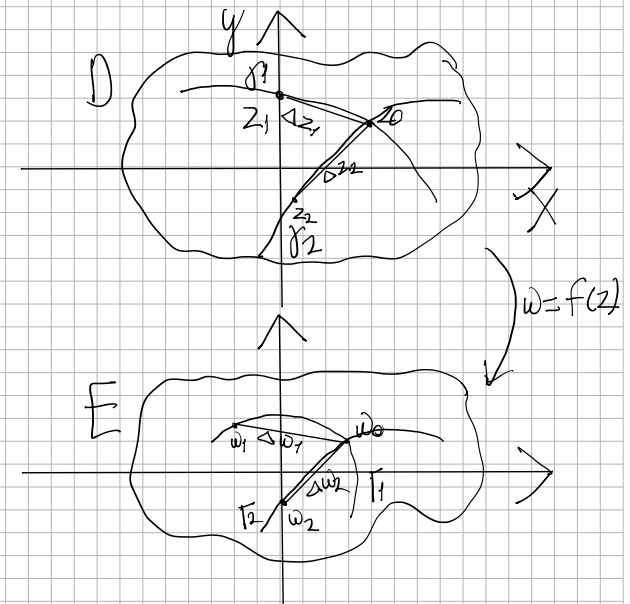 y
D
γ1
z1 Δz1
z0
Δz2
z2
γ2
X
w=f(z)
E
w0
w1 Δw1
Δw2
Γ1
Γ2
w2